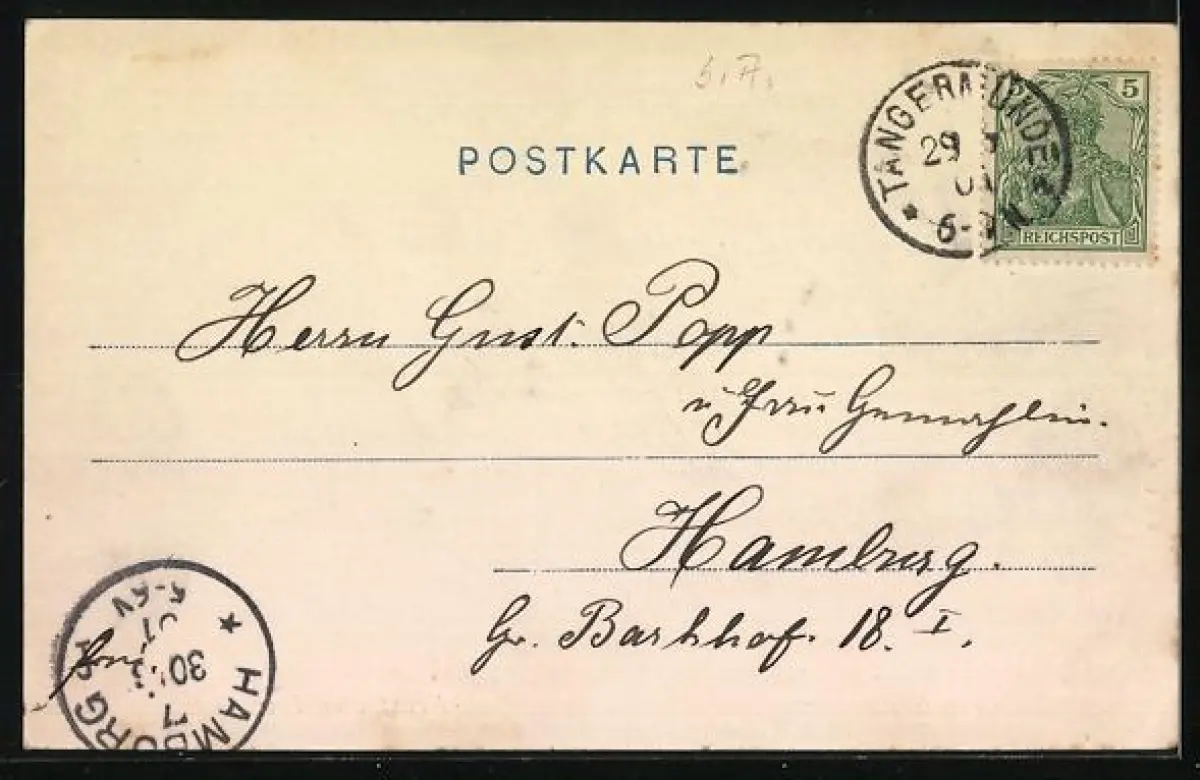 POSTKARTE
TANGERMÜNDE
29
5
REICHSPOST
Herrn Gust. Popp
u. Frau Gemahlin.
Hamburg.
Gr. Barkhof. 18. I.
HAMBURG
30
5-6V